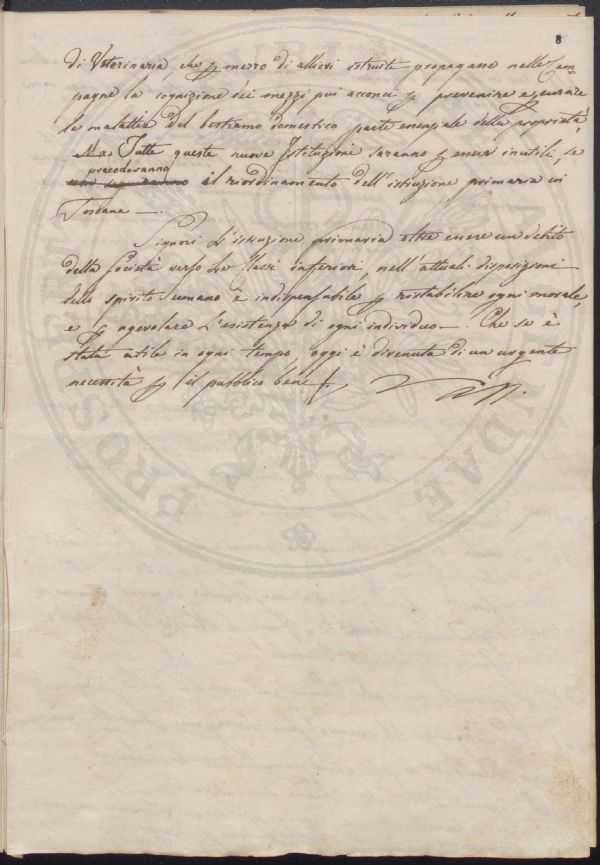 8
di Veterinaria, che p mezzo di allievi istruiti propagasse nelle Cam=
pagne la cognizione dei mezzi più acconci p prevenire e curare
le malattie del bestiame domestico parte essenziale della proprietà.
Ma Tutte queste nuove Istituzioni saranno p esser inutili, se
precederanno
al riordinamento dell'istruzione primaria in
Toscana —.
Signori L'istruzione primaria oltre essere un debito
della Società verso le Classi inferiori, nell'attuali disposizioni
dello spirito umano è indispensabile p ristabilire ogni morale,
e p agevolare l'esistenza di ogni individuo —. Che se è
stata utile in ogni tempo, oggi è divenuta di un urgente
necessità p il pubblico bene
PROS
NDAE